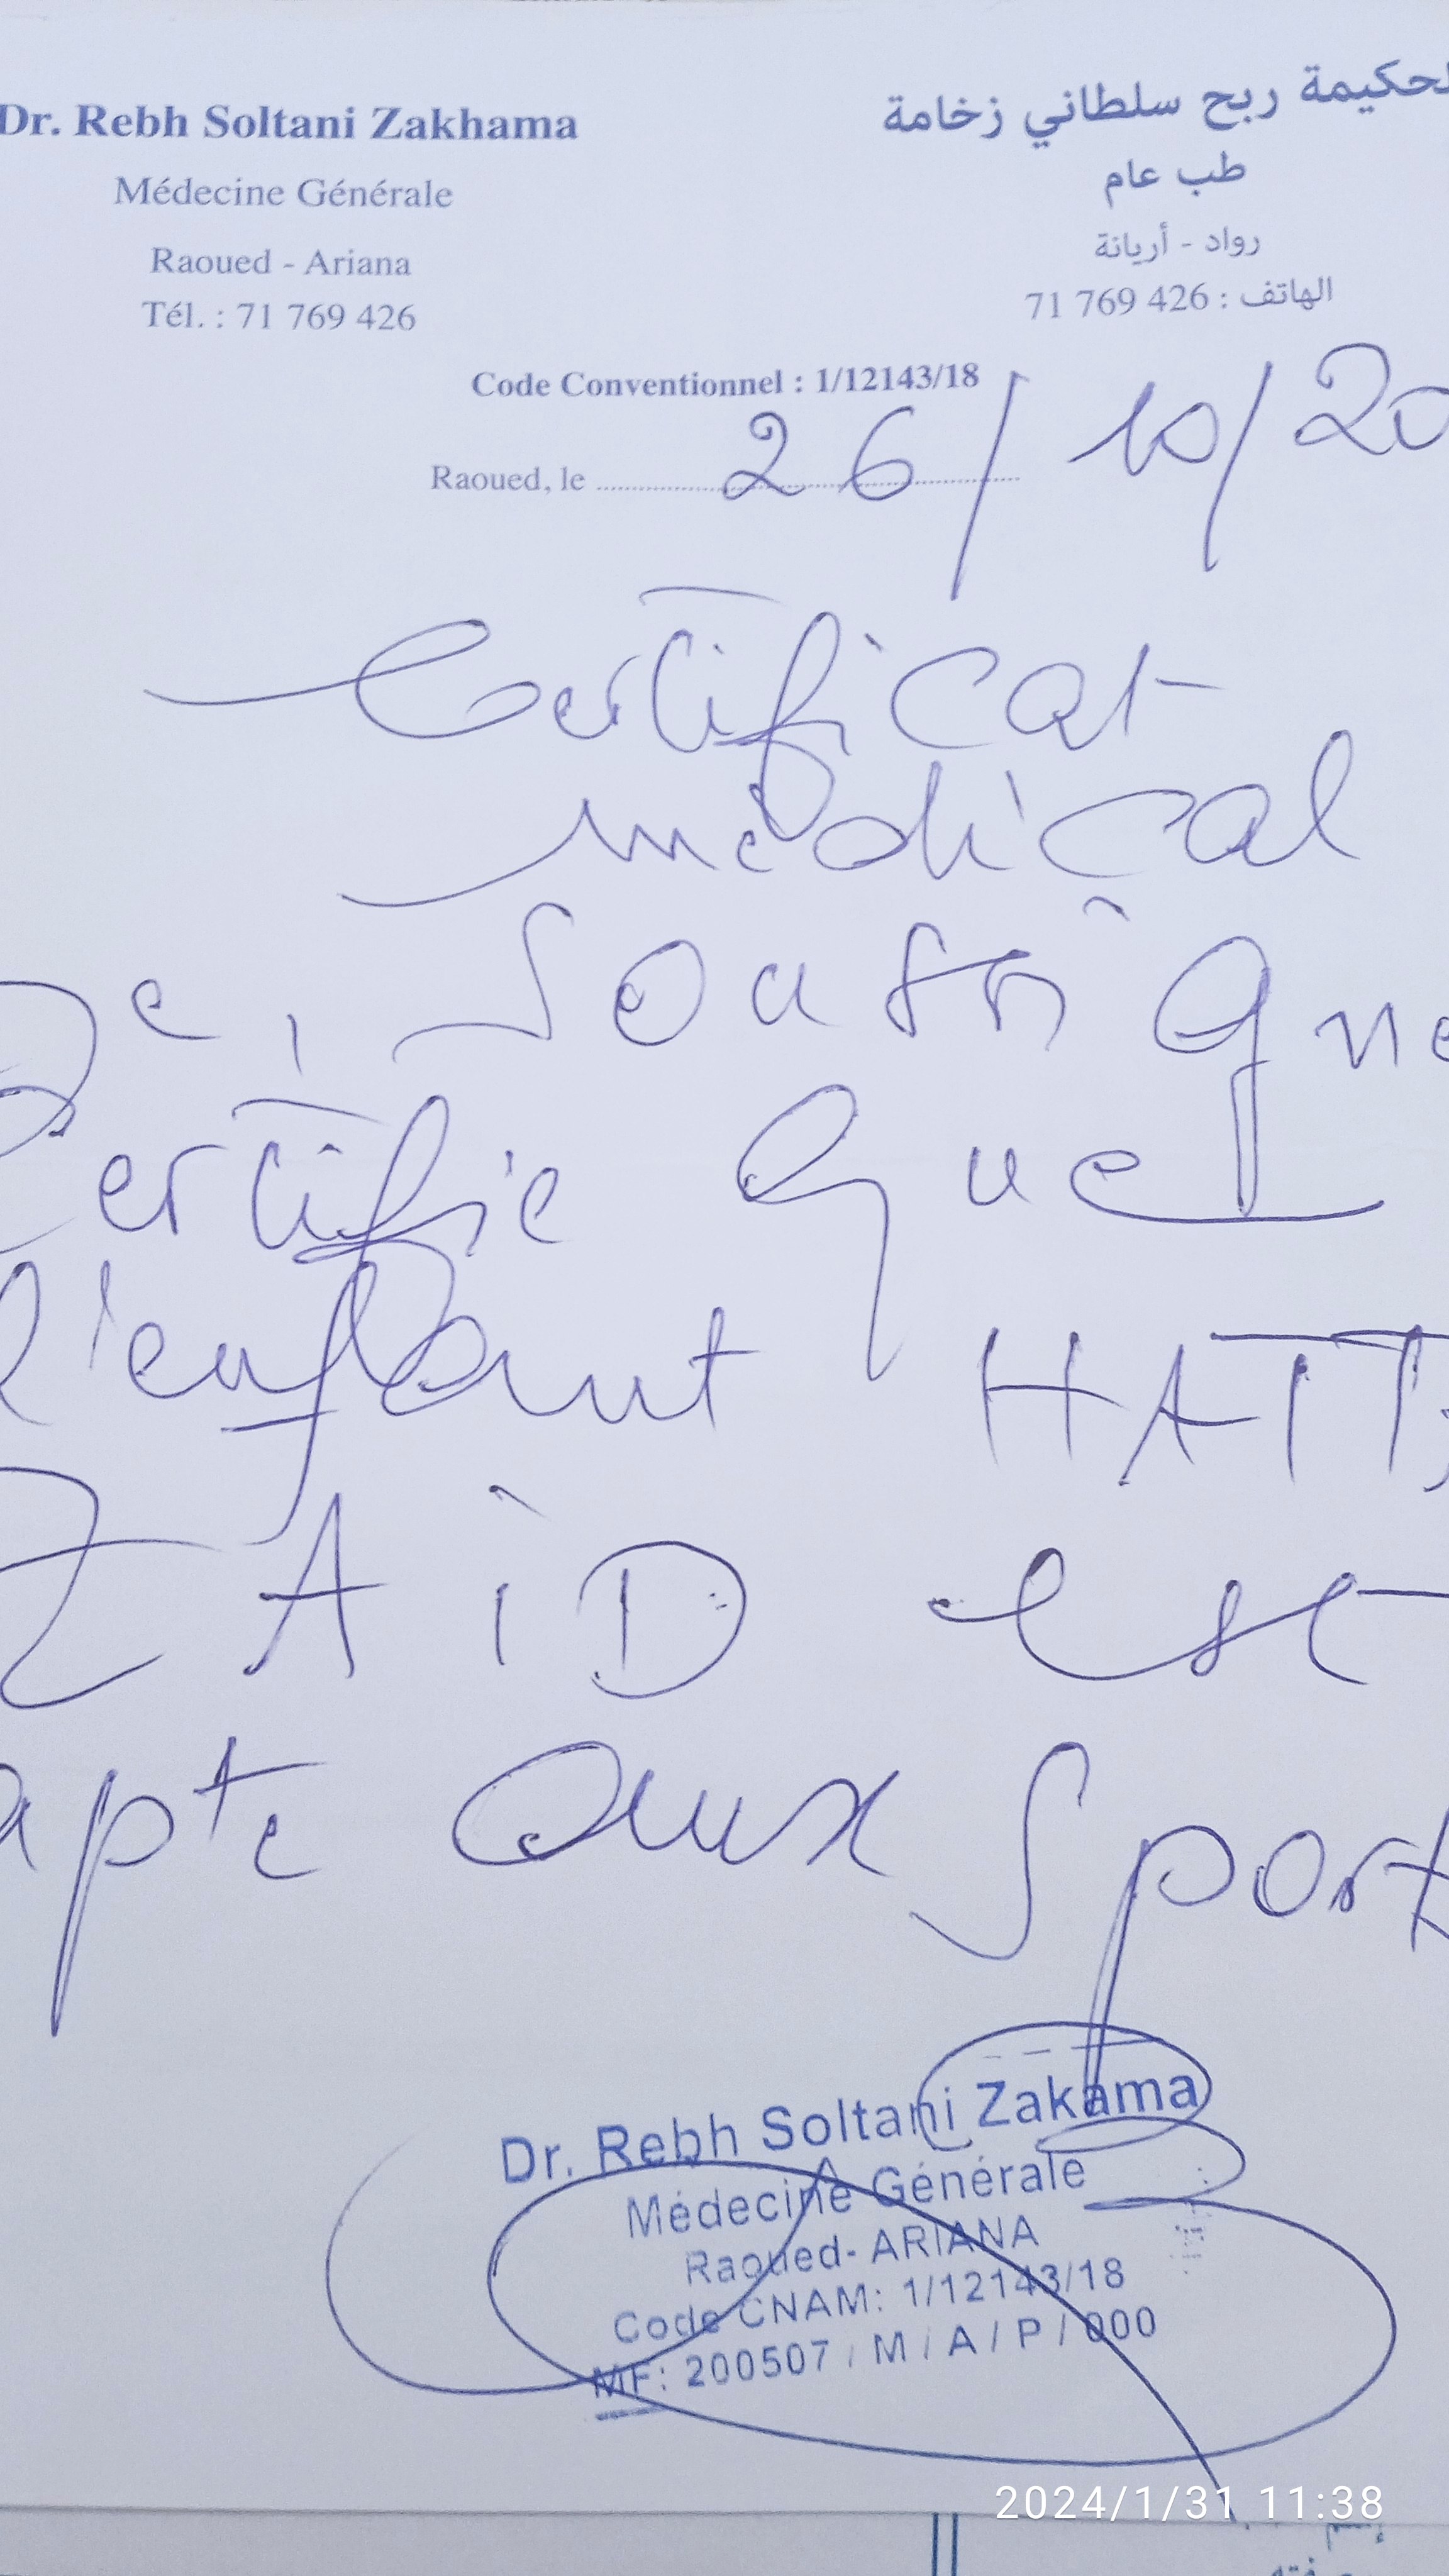 Dr. Rebh Soltani Zakhama
Médecine Générale
Raoued - Ariana
Tél. : 71 769 426
لحكيمة ربح سلطاني زخامة
طب عام
رواد - أريانة
الهاتف : 426 769 71
Code Conventionnel : 1/12143/18
Raoued, le 26/10/20
Certificat
médical
Je, Soussigné
Certifie que
l'enfant HATT
ZAiD est
apte aux Sport
Dr. Rebh Soltani Zakama
Médecine Générale
Raoued- ARIANA
Code CNAM: 1/12143/18
MF: 200507 / M / A / P / 000
2024/1/31 11:38